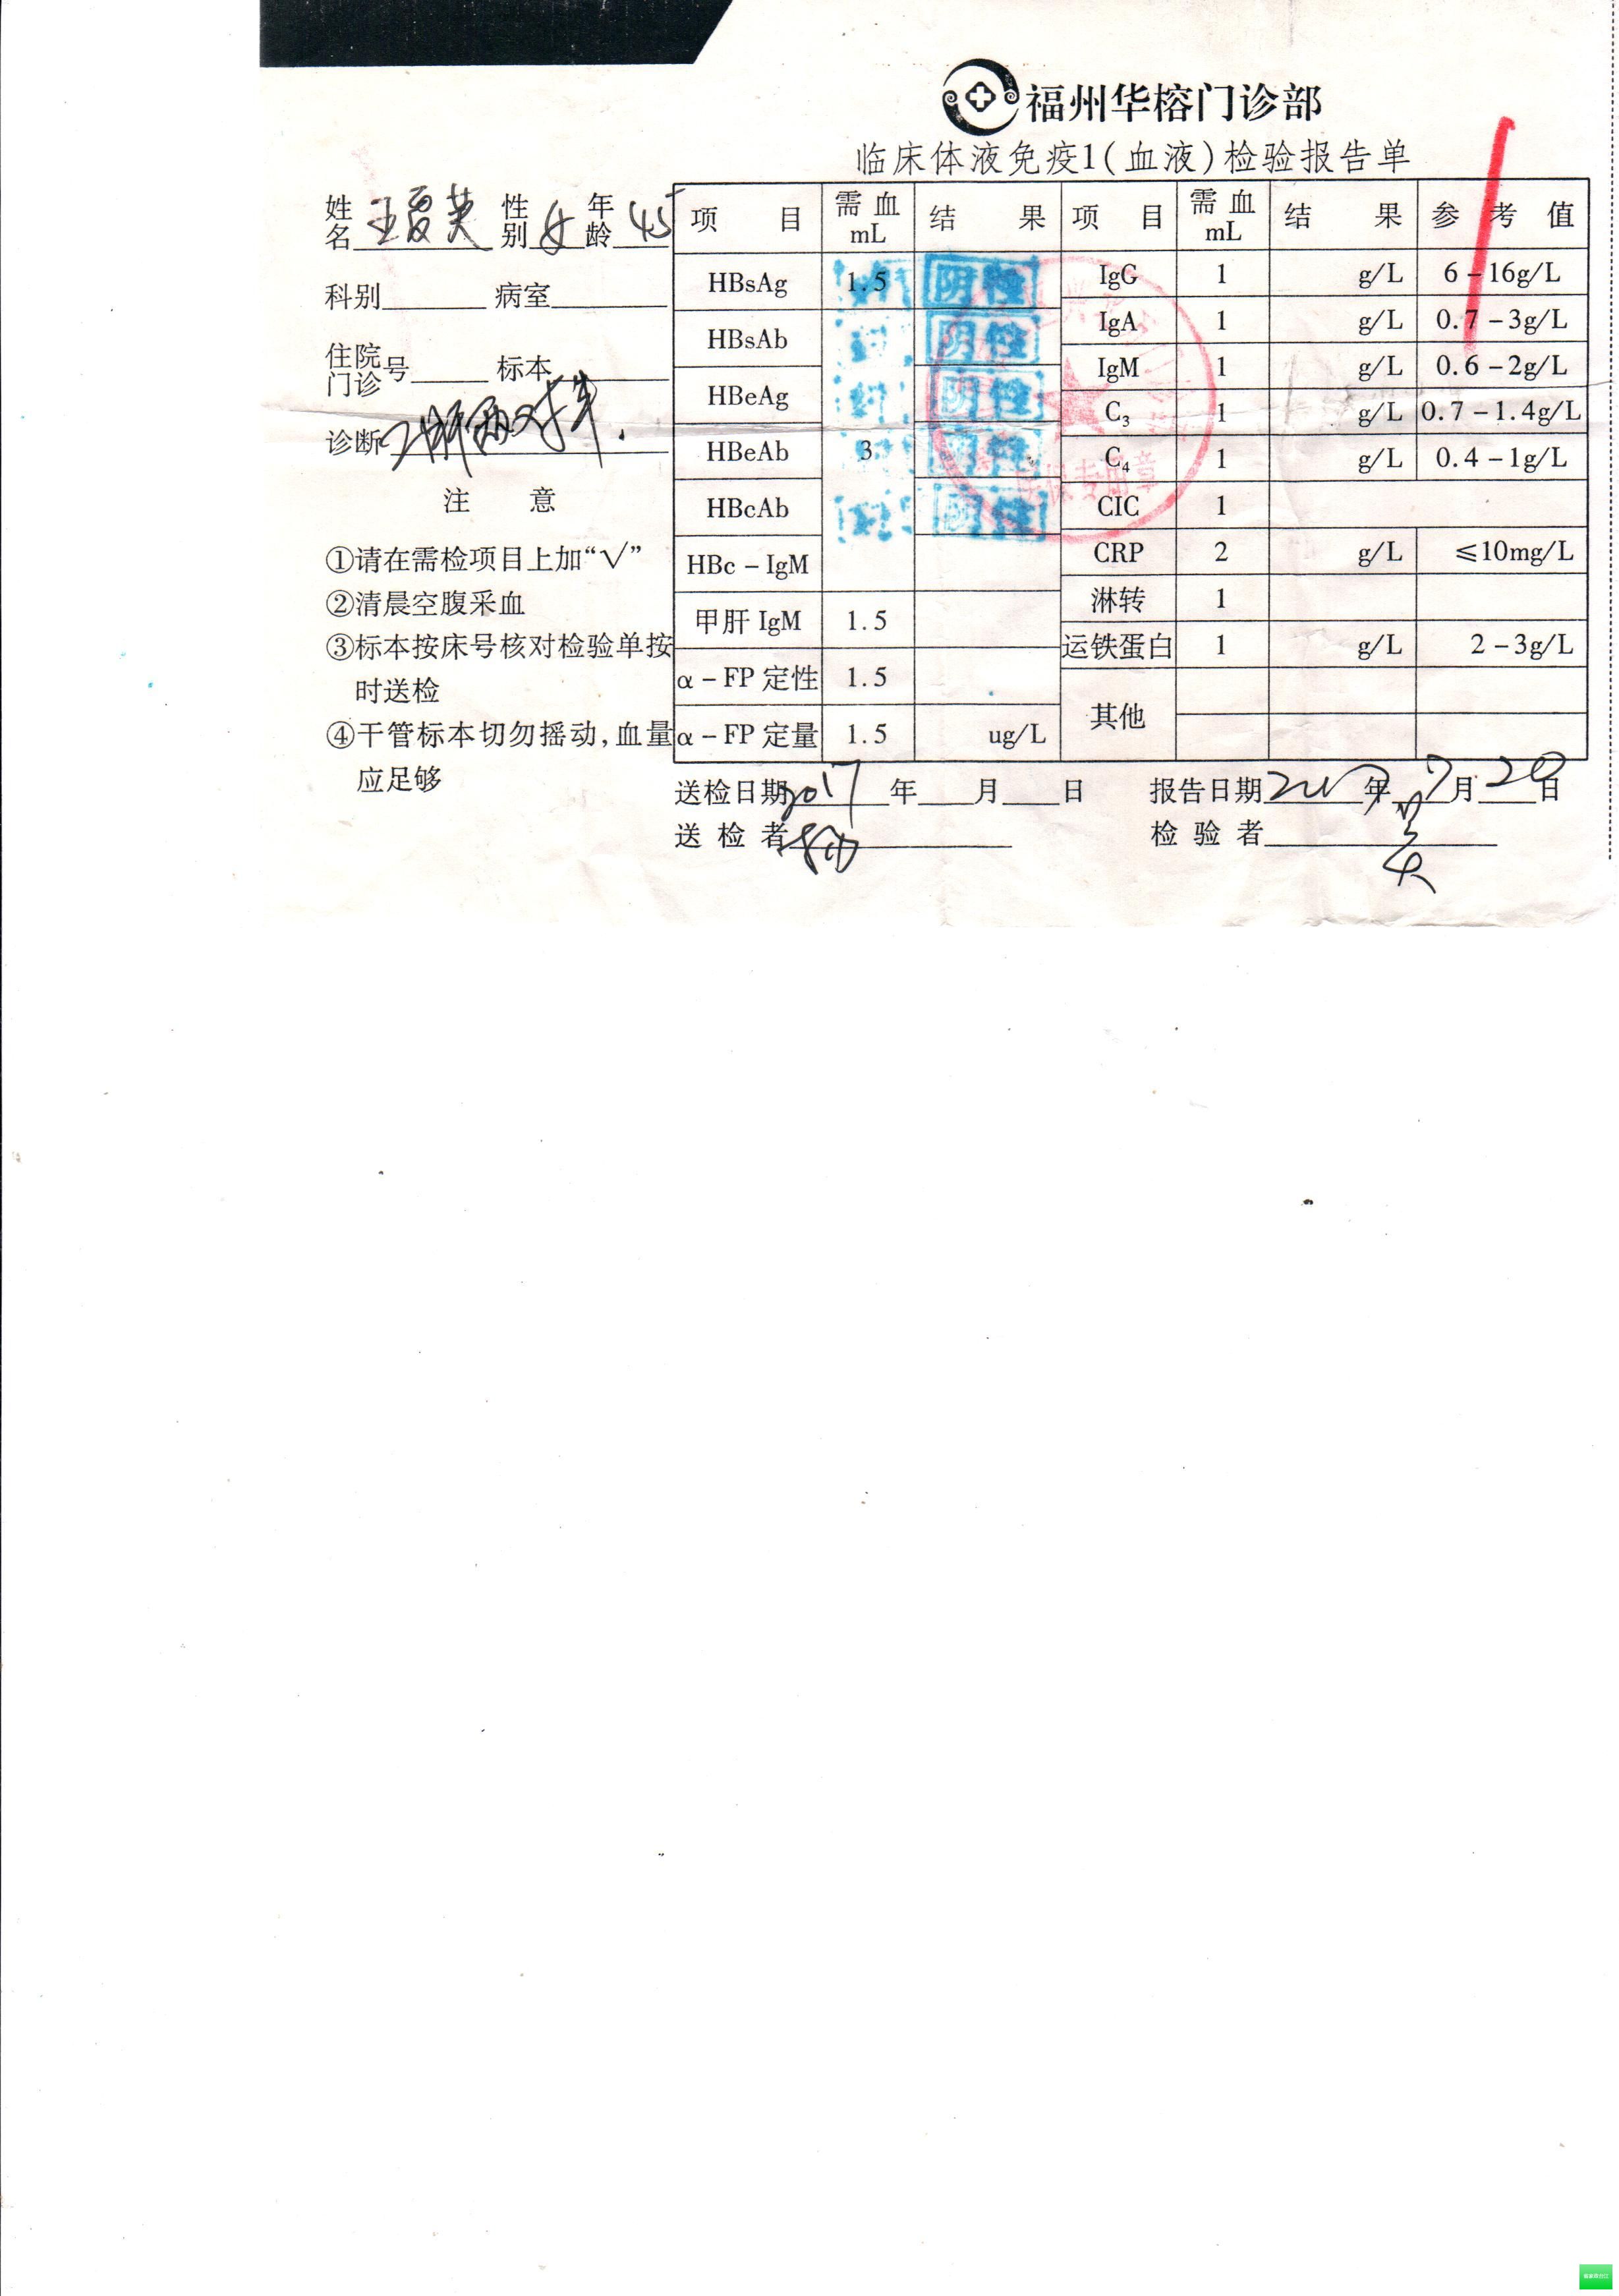 福州华榕门诊部
临床体液免疫1(血液)检验报告单
姓名 王夏英 性别 女 年龄 45
科别 病室
住院门诊号 标本
诊断 乙肝两对半.
注 意
①请在需检项目上加“√”
②清晨空腹采血
③标本按床号核对检验单按
时送检
④干管标本切勿摇动,血量
应足够
项 目 需血mL 结 果 项 目 需血mL 结 果 参 考 值
HBsAg 1.5 阴性 IgG 1 g/L 6-16g/L
HBsAb 阴性 IgA 1 g/L 0.7-3g/L
HBeAg 阴性 IgM 1 g/L 0.6-2g/L
C3 1 g/L 0.7-1.4g/L
HBeAb 3 阴性 C4 1 g/L 0.4-1g/L
HBcAb 阴性 CIC 1
HBc-IgM CRP 2 g/L ≤10mg/L
淋转 1
甲肝IgM 1.5 运铁蛋白 1 g/L 2-3g/L
α-FP定性 1.5
其他
α-FP定量 1.5 ug/L
专用章
送检日期 2017 年 月 日 报告日期 2017 年 7 月 20 日
送检者 检验者